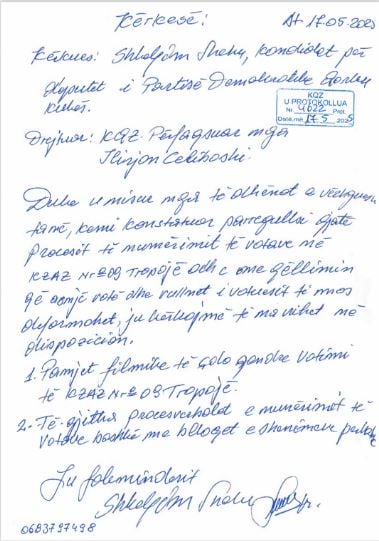 Kërkesë: Dt 17.05.2025
Kërkues: Shkelqim Shehu, kandidat për
deputet i Partisë Demokratike Qarku
Kukës.
KQZ
U PROTOKOLLUA
Nr. 4022 Prot.
Datë, më 17.5 2025
Drejtuar: KQZ Përfaqsuar nga
Ilirjon Celibashi.
Duke u nisur nga të dhënat e vëzhguesve
tanë, kemi konstatuar parregullsi gjatë
procesit të numërimit të votave në
KZAZ Nr 09 Tropojë dhe me qëllimin
që asnjë votë dhe vullnet i votuesit të mos
deformohet, ju kërkojmë të na vihet në
dispozicion.
1. Pamjet filmike të çdo qendre votimi
të KZAZ Nr 09 Tropojë.
2. Të gjitha procesverbalet e numërimit të
votave bashkë me blloqet e shënimeve
Ju faleminderit
Shkelqim Shehu
0683797498